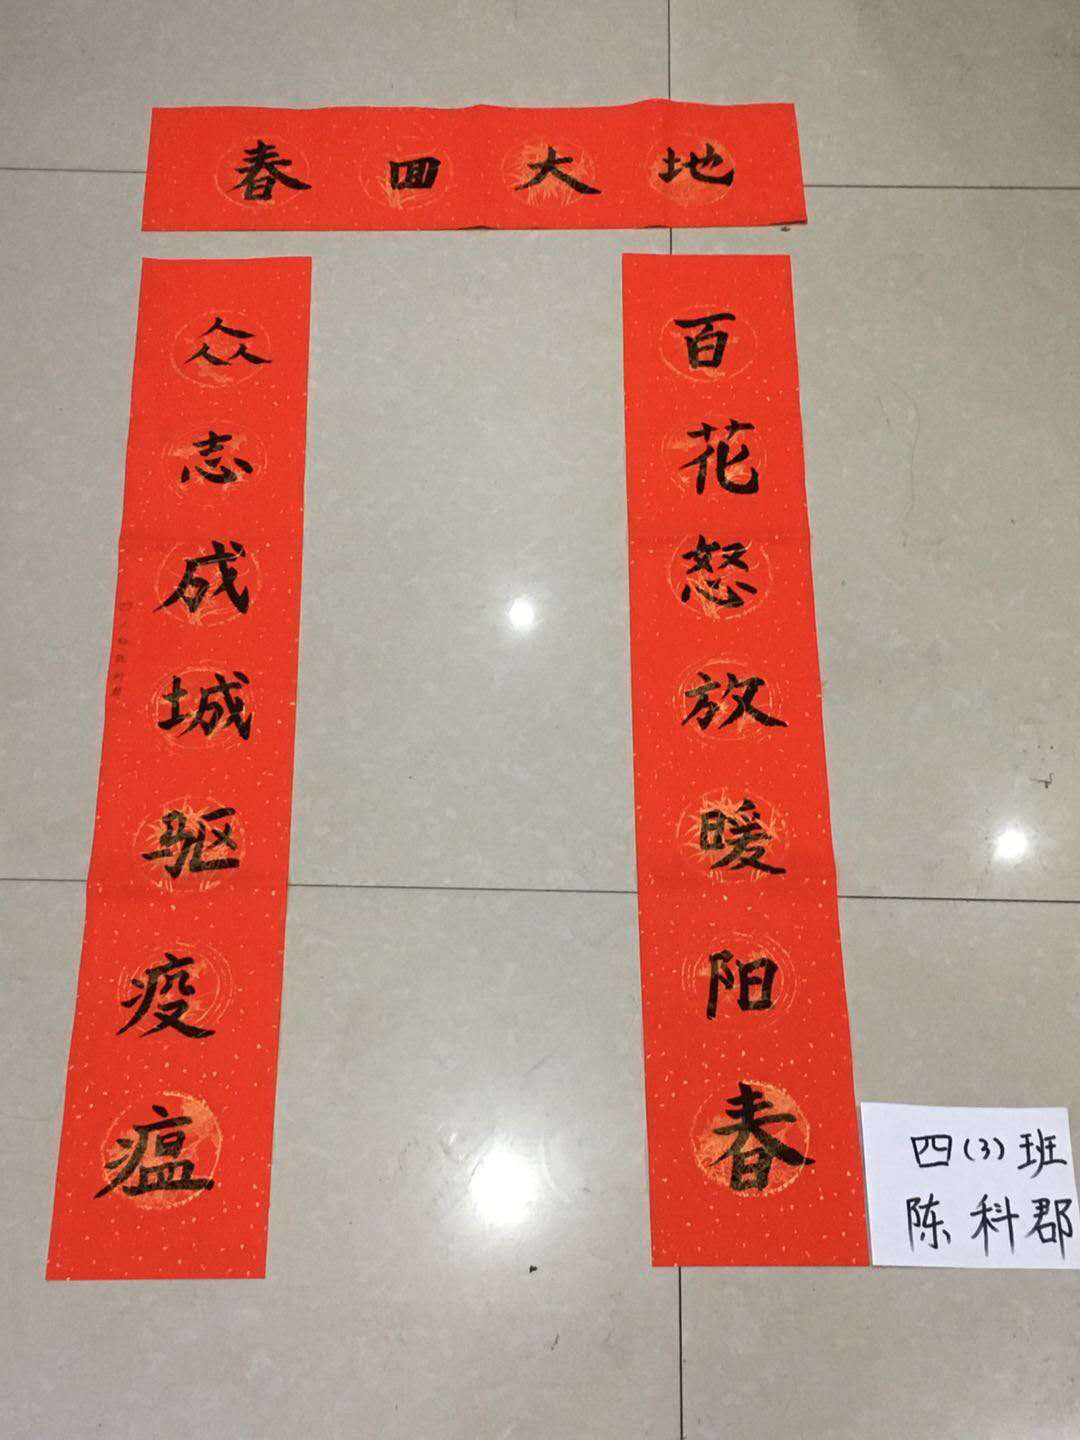 春回大地
众志成城驱疫瘟
百花怒放暖阳春
四(3)班
陈科郡